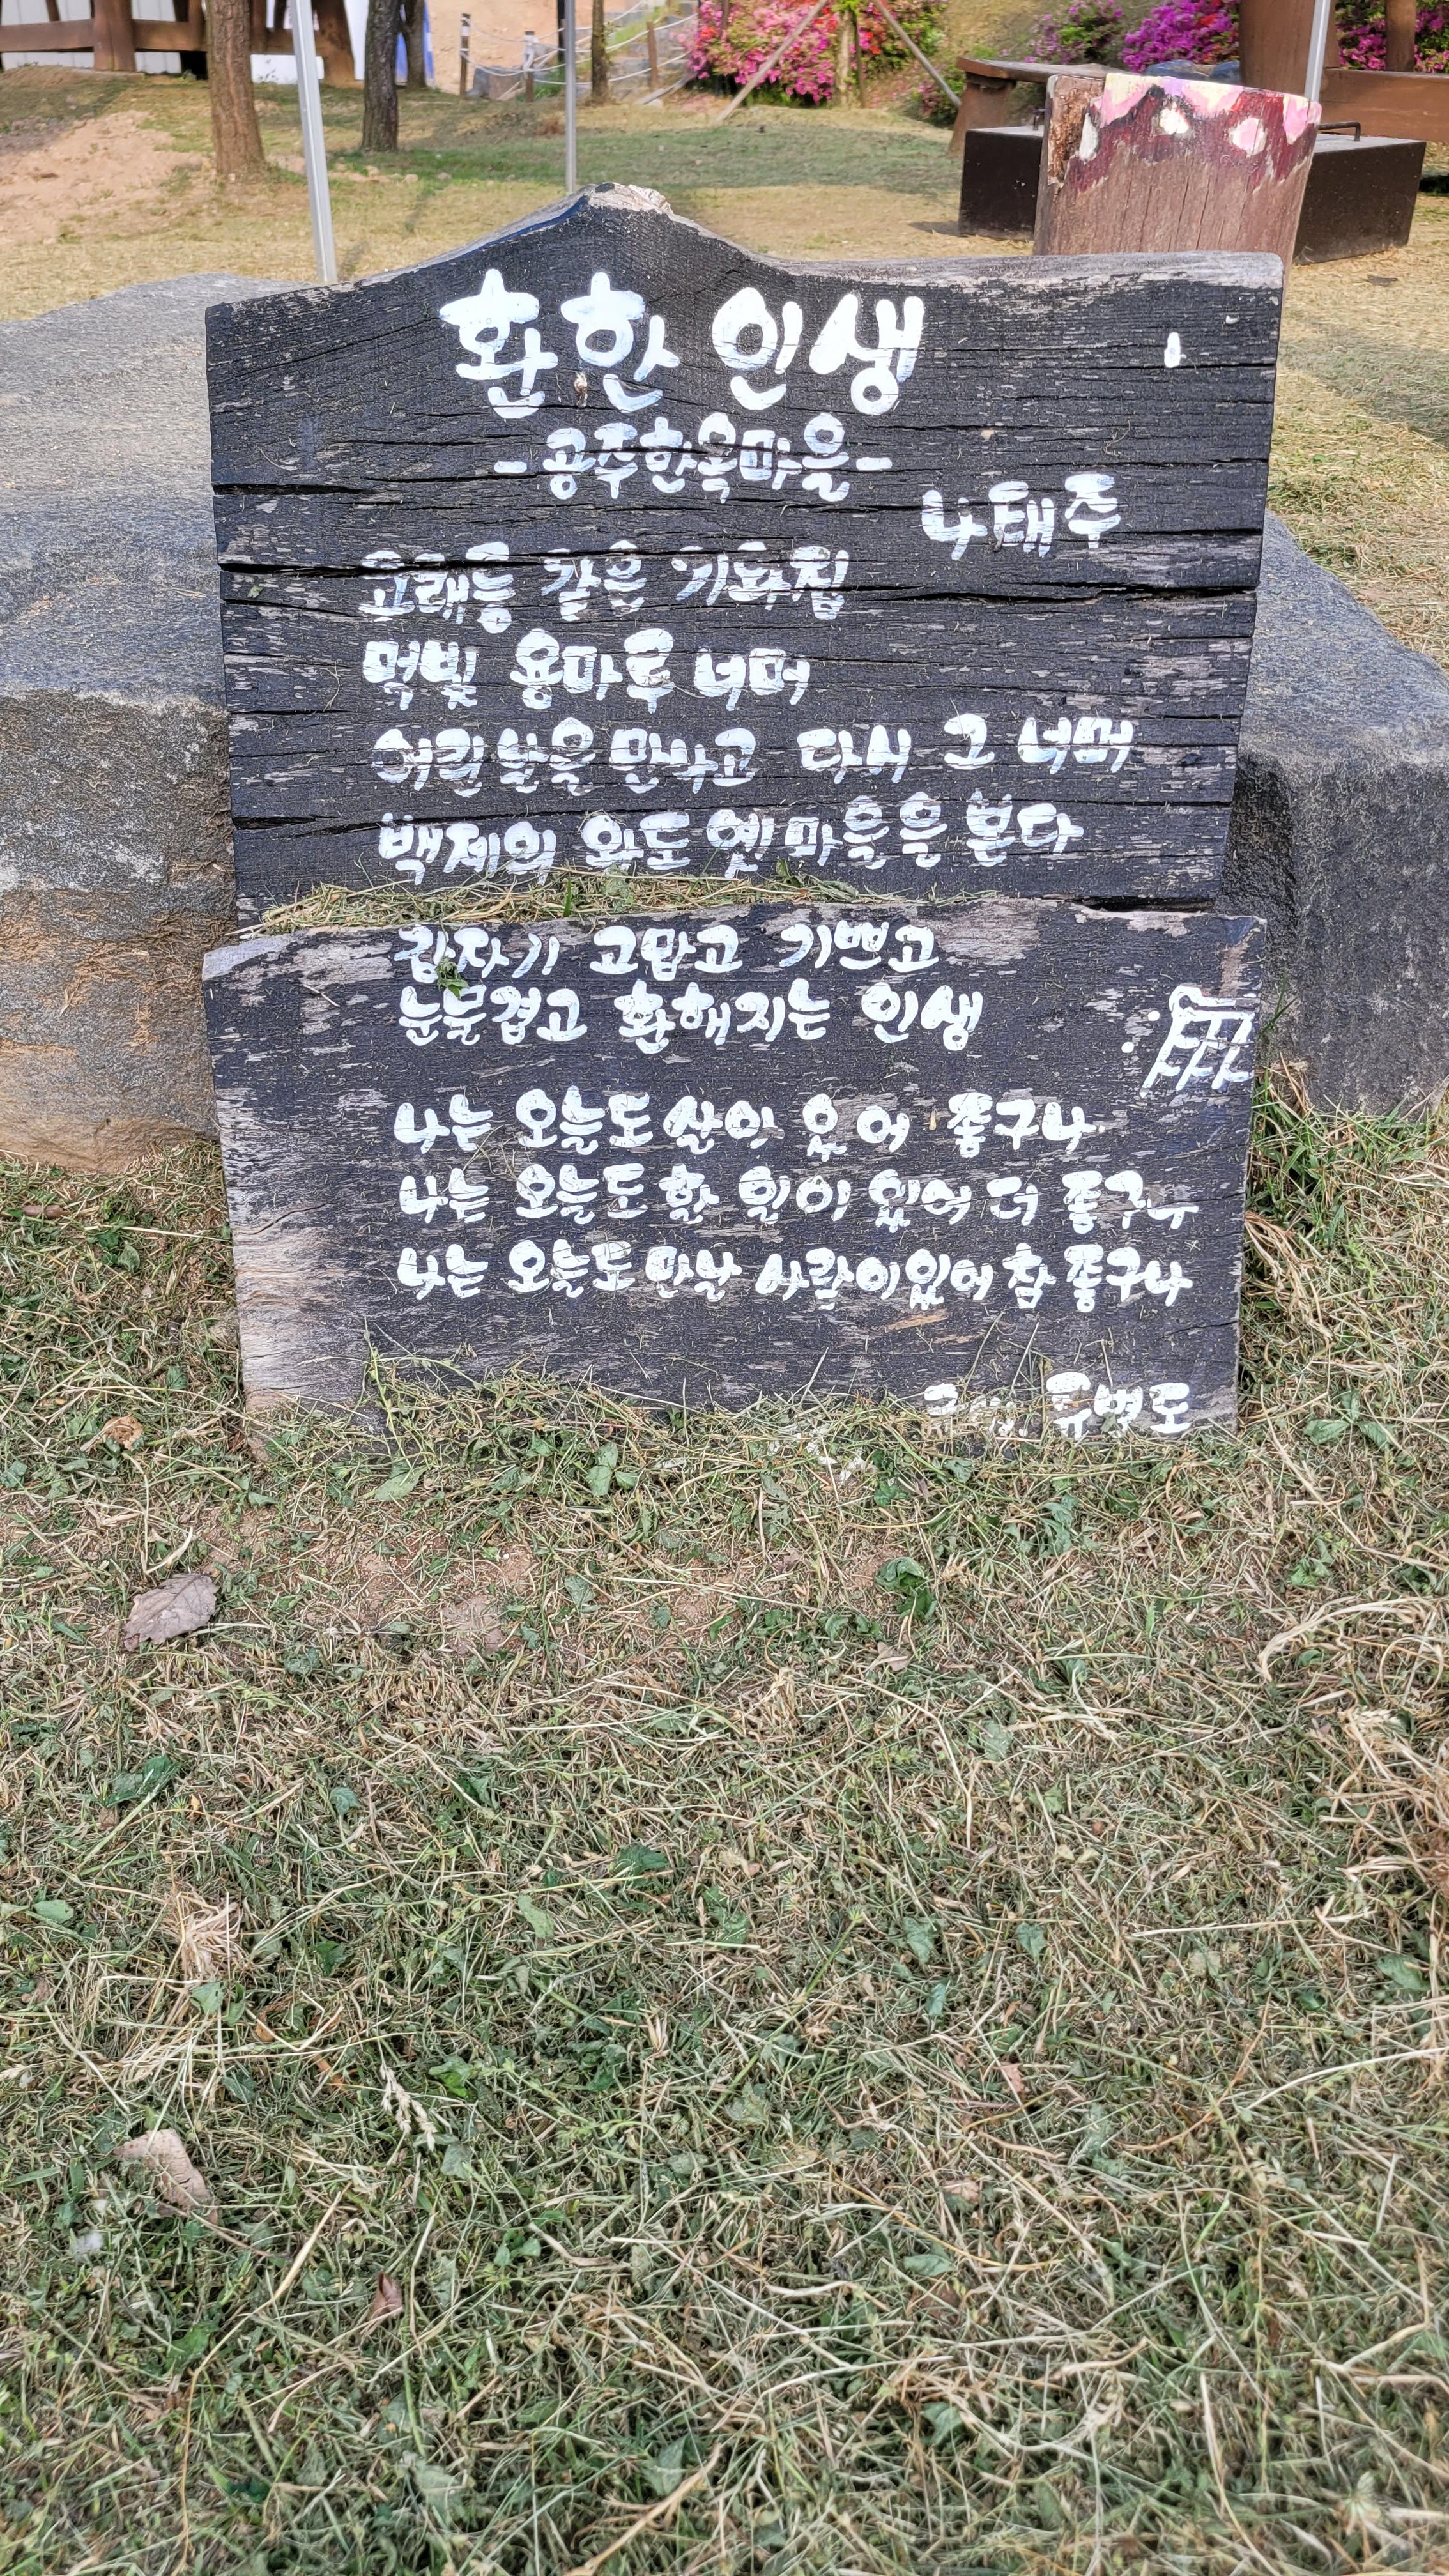 환한 인생
-공주한옥마을-
나태주
고래등 같은 기와집
먹빛 용마루 너머
어린 날을 만나고 다시 그 너머
백제의 왕도 옛 마을을 본다
갑자기 고맙고 기쁘고
눈물겹고 환해지는 인생
나는 오늘도 살아 있어 좋구나
나는 오늘도 할 일이 있어 더 좋구나
나는 오늘도 만날 사람이 있어 참 좋구나
류병도